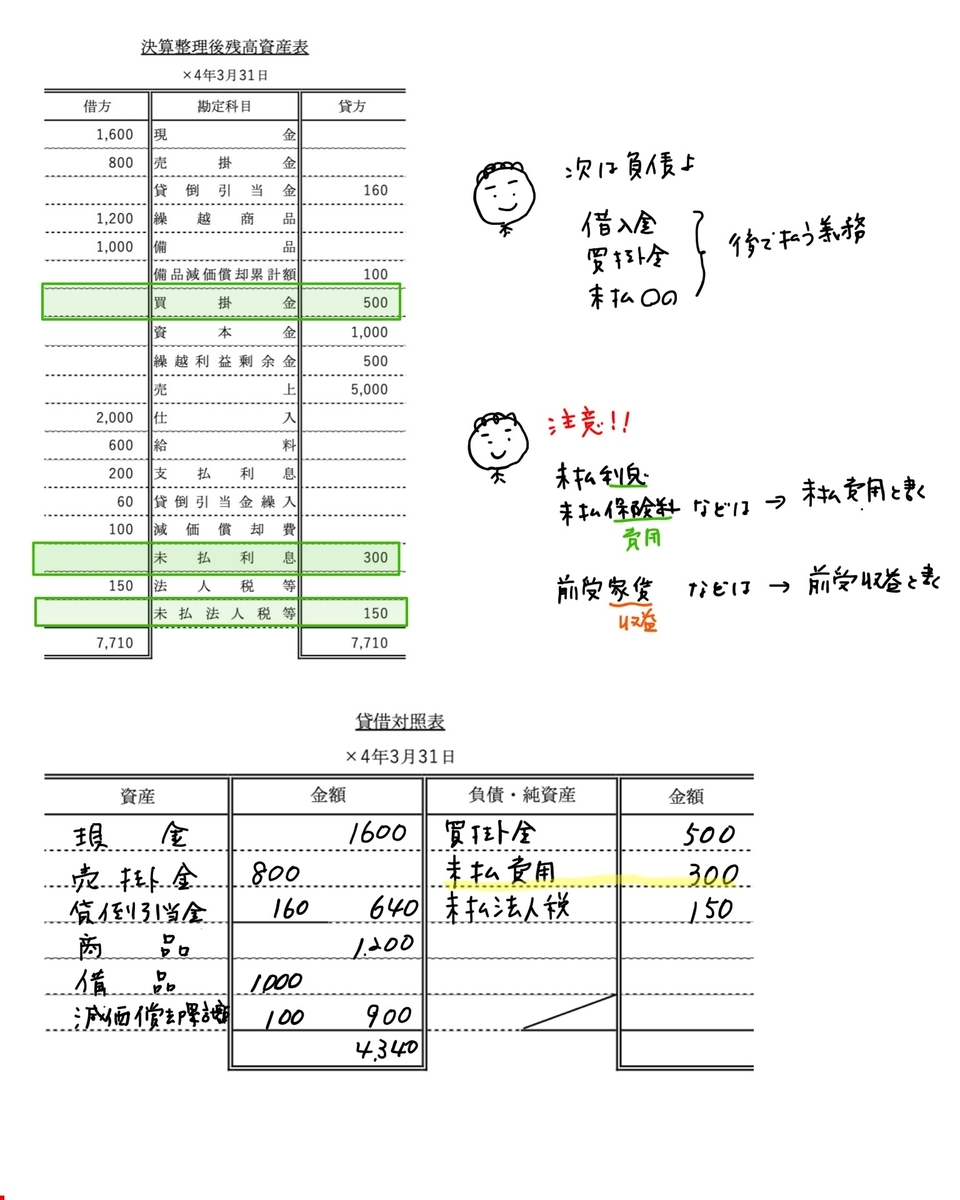 決算整理後残高資産表
×4年3月31日
借方 勘定科目 貸方
1,600 現金
800 売掛金
貸倒引当金 160
1,200 繰越商品
1,000 備品
備品減価償却累計額 100
買掛金 500
資本金 1,000
繰越利益剰余金 500
売上 5,000
2,000 仕入
600 給料
200 支払利息
60 貸倒引当金繰入
100 減価償却費
未払利息 300
150 法人税等
未払法人税等 150
7,710 7,710
次は負債よ
借入金
買掛金
未払〇の
後で払う義務
注意!!
未払利息
未払保険料 などは → 未払費用と書く
費用
前受家賃 などは → 前受収益と書く
収益
貸借対照表
×4年3月31日
資産 金額 負債・純資産 金額
現金 1600 買掛金 500
売掛金 800 未払費用 300
貸倒引当金 160 640 未払法人税 150
商品 1.200
備品 1000
減価償却累計額 100 900
4.340